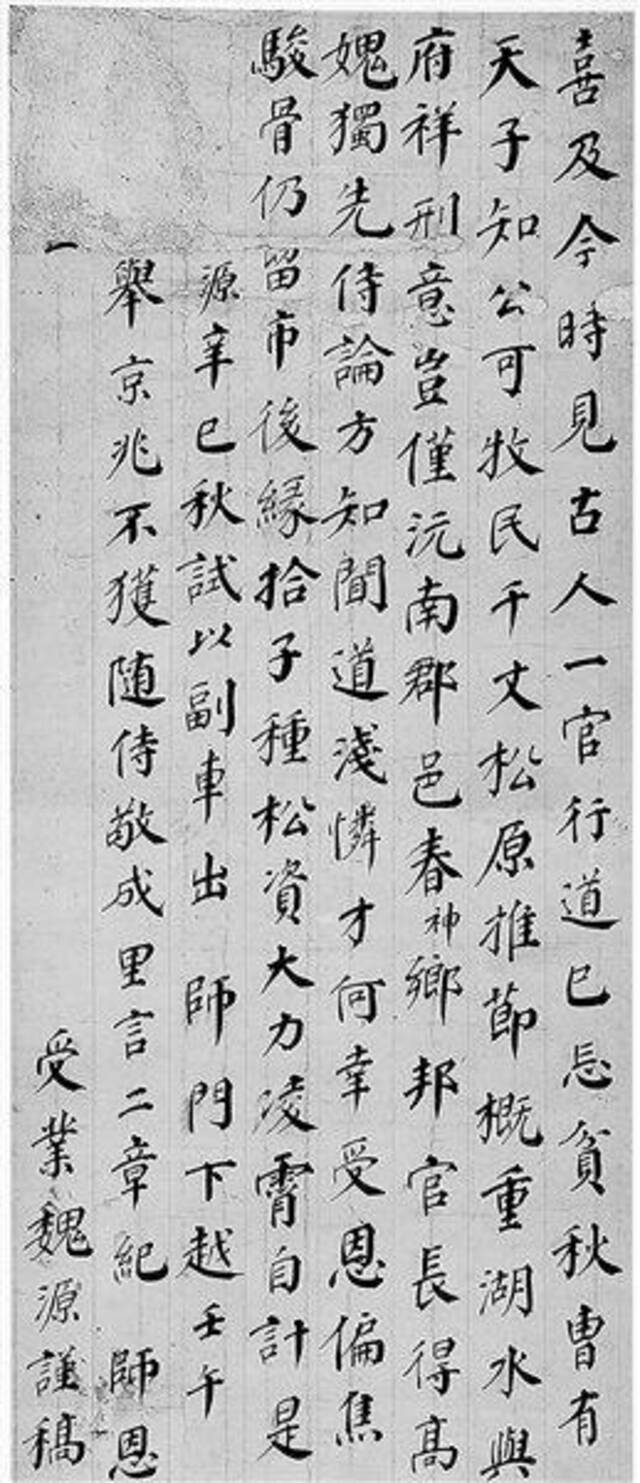 喜及今時見古人一官行道已忘貧秋曹有
天子知公可牧民千丈松原推節概重湖水與
府祥刑意豈僅沅南郡邑春神鄉邦官長得高
媿獨先侍論方知聞道淺憐才何幸受恩偏焦
駿骨仍留市後緣拾子種松資大力凌霄自計是
源辛巳秋試以副車出 師門下越壬午
舉京兆不獲随侍敬成里言二章紀 師恩
一
受業魏源謹稿